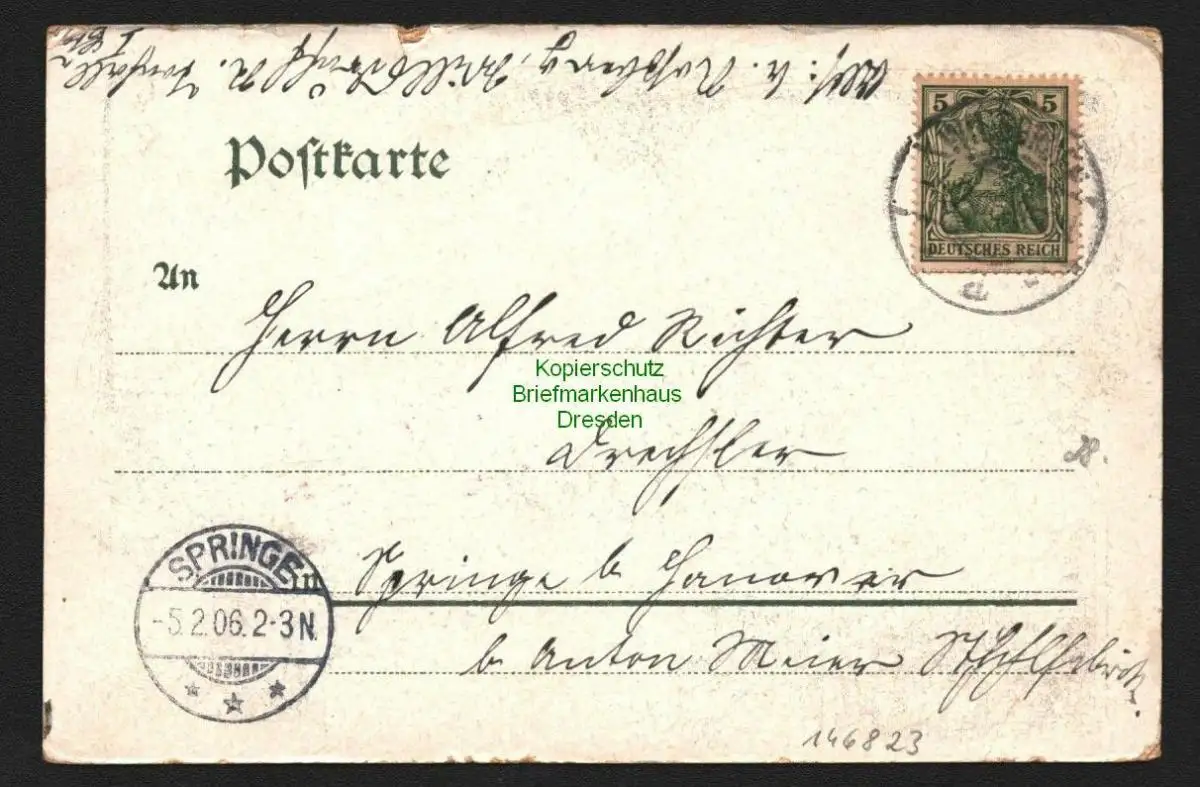 Postkarte
5 5
DEUTSCHES REICH
An
Herrn Alfred Richter
Kopierschutz
Briefmarkenhaus
Dresden
Drechsler
28.
SPRINGE
-5.2.06.2-3N.
in Springe b Hanover
b Anton Meier Stuhlfabrik.
146823